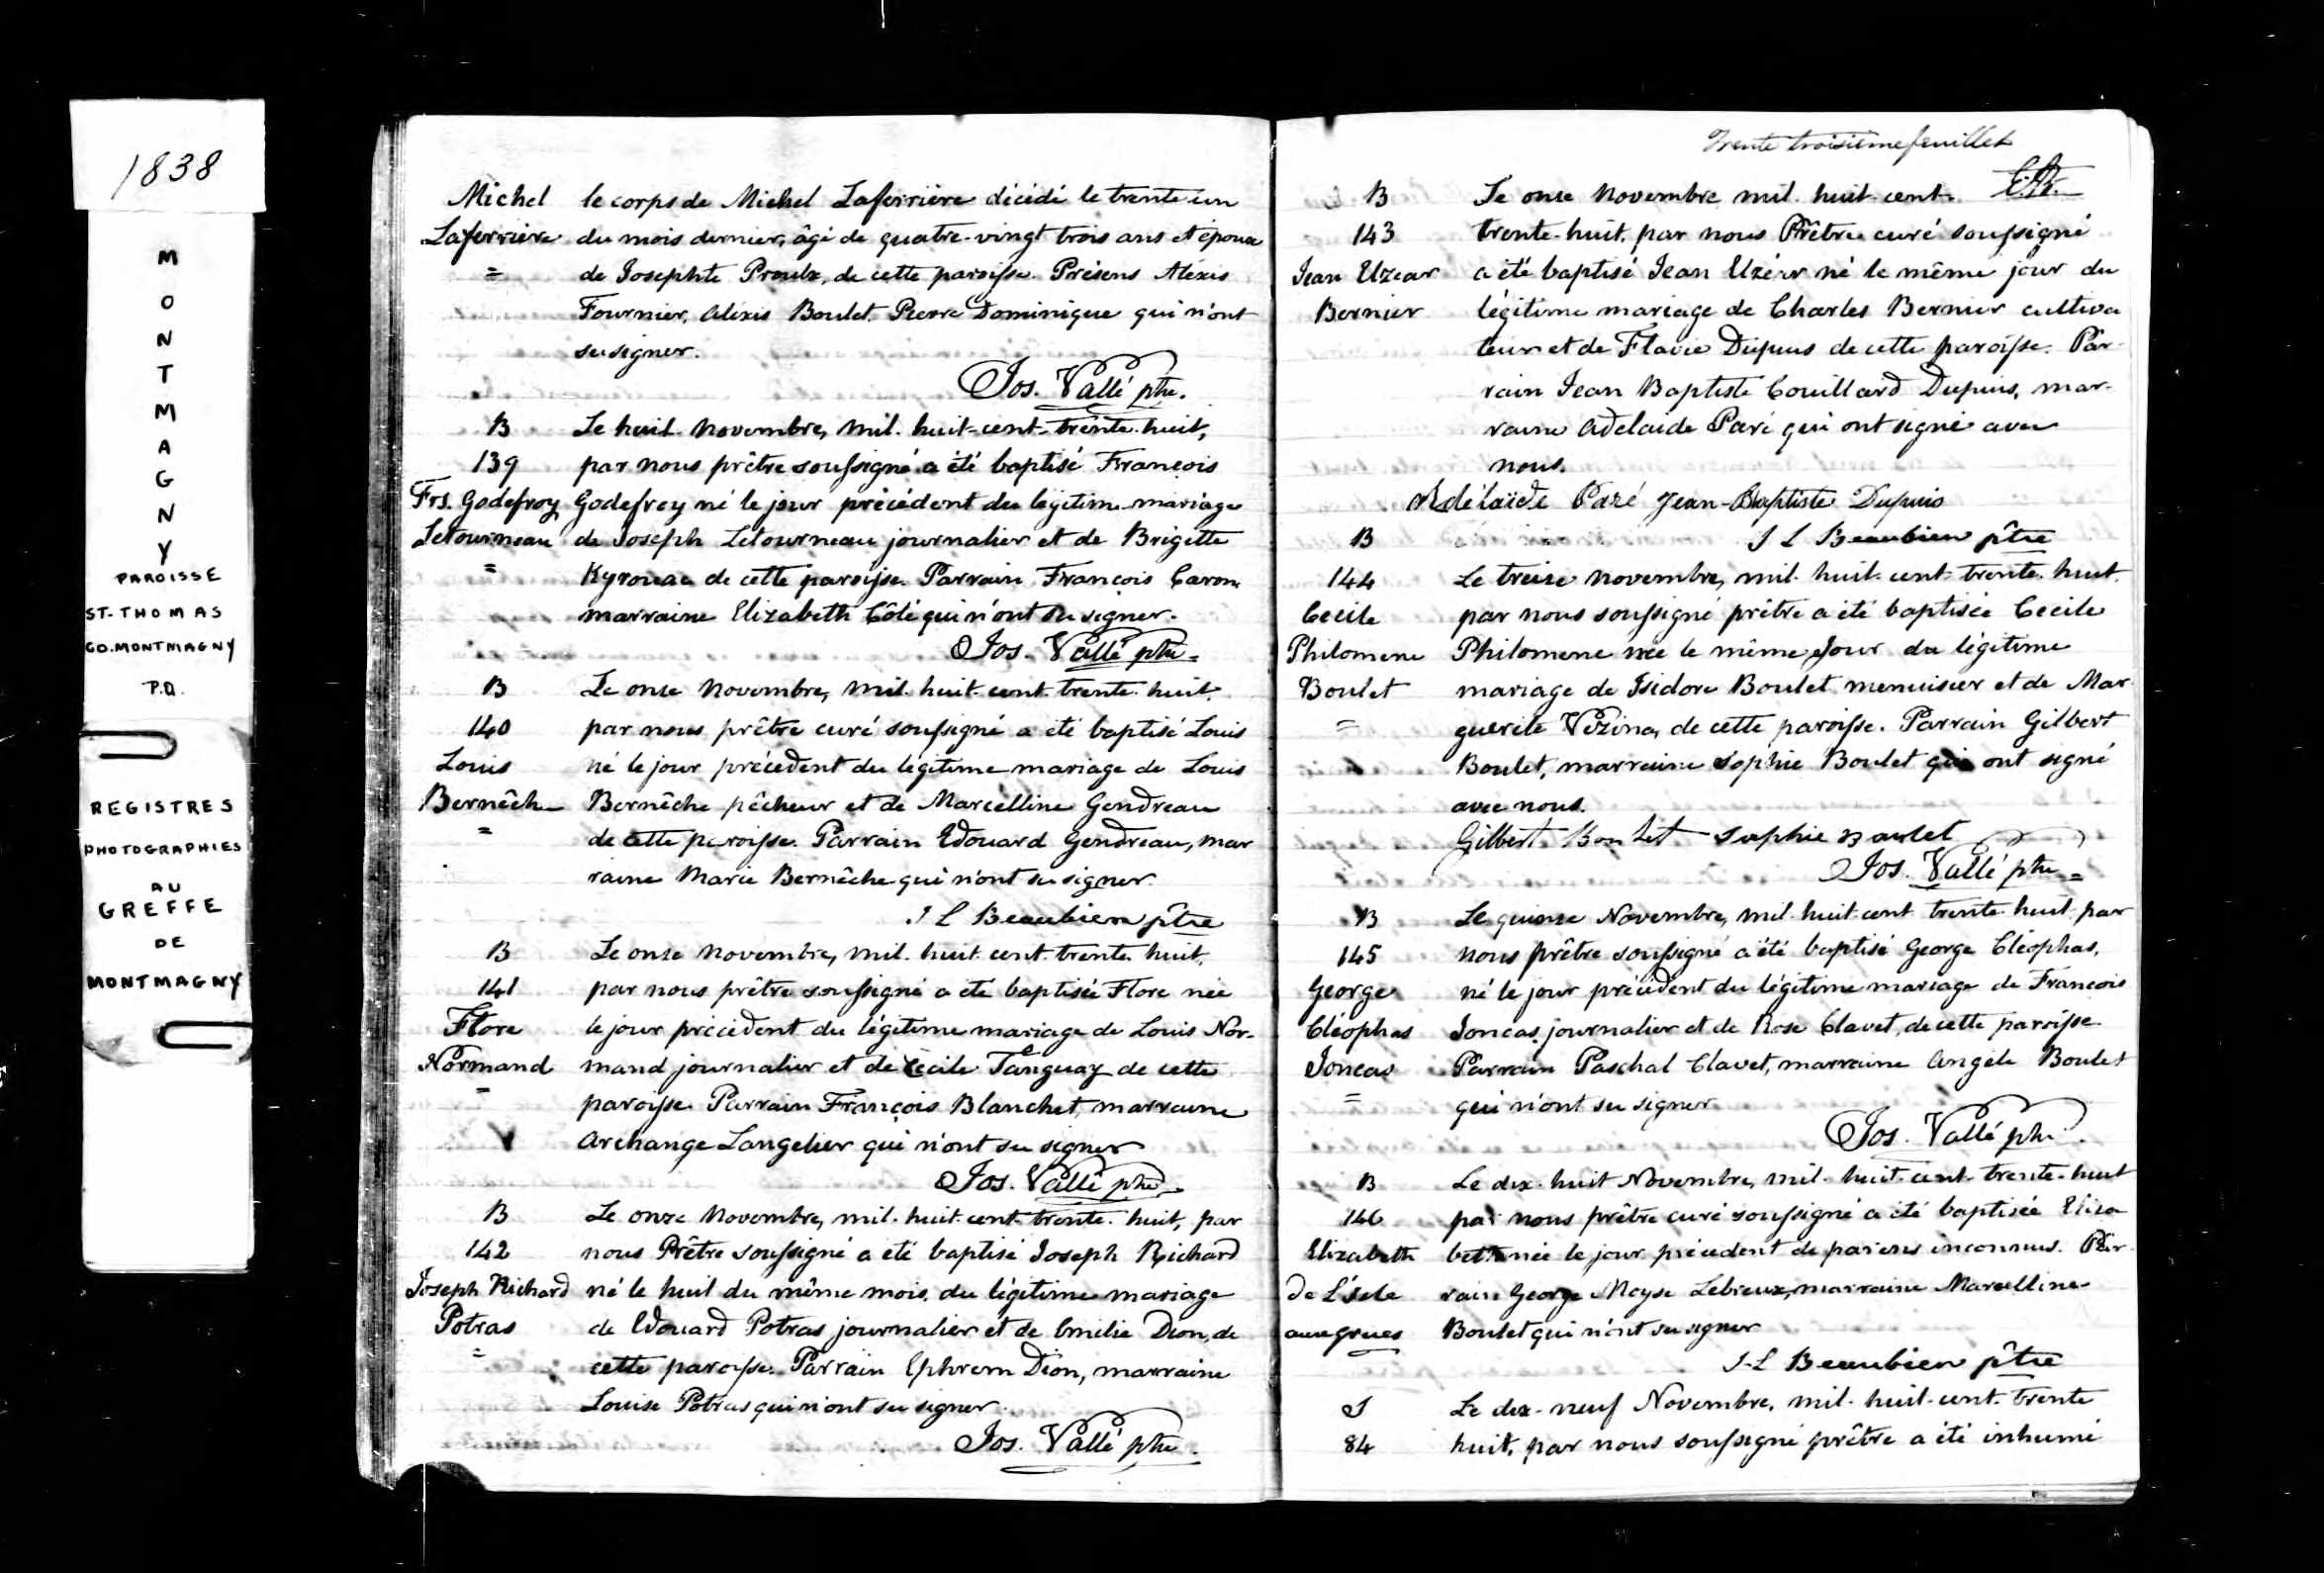 1838
MONTMAGNY
PAROISSE
ST-THOMAS
CO.MONTMAGNY
P.Q.
REGISTRES
PHOTOGRAPHIES
AU
GREFFE
DE
MONTMAGNY
Michel le corps de Michel Laferrière décédé le trente un
Laferrière du mois dernier, âgé de quatre-vingt trois ans et époux
= de Josephte Proulx, de cette paroisse. Présens Alexis
Fournier, Alexis Boulet, Pierre Dominique qui n'ont
su signer.
Jos. Vallé ptre.
B Le huit Novembre, mil-huit-cent-trente-huit,
139 par nous prêtre soussigné a été baptisé François
Frs. Godefroy Godefroy né le jour précédent du légitime mariage
Letourneau de Joseph Letourneau journalier et de Brigette
= Kyrouac de cette paroisse. Parrain François Caron
marraine Elizabeth Côté qui n'ont su signer.
Jos. Vallé ptre.
B Le onze Novembre, mil-huit-cent-trente-huit,
140 par nous prêtre curé soussigné a été baptisé Louis
Louis né le jour précédent du légitime mariage de Louis
Bernêche Bernêche pêcheur et de Marcelline Gendreau
= de cette paroisse. Parrain Edouard Gendreau, mar
raine Marie Bernêche qui n'ont su signer.
J L Beaubien ptre
B Le onze Novembre, mil-huit-cent-trente-huit,
141 par nous prêtre soussigné a été baptisée Flore née
Flore le jour précédent du légitime mariage de Louis Nor-
Normand mand journalier et de Cécile Tanguay de cette
= paroisse. Parrain François Blanchet, marraine
Archange Langelier qui n'ont su signer
Jos. Vallé ptre
B Le onze Novembre, mil-huit-cent-trente-huit, par
142 nous Prêtre soussigné a été baptisé Joseph Richard
Joseph Richard né le huit du même mois, du légitime mariage
Potras de Edouard Potras journalier et de Emilie Dion, de
= cette paroisse. Parrain Ephrem Dion, marraine
Louise Potras qui n'ont su signer.
Jos. Vallé ptre.
Trente troisième feuillet
B Le onze Novembre mil-huit-cent-
143 trente-huit, par nous Prêtre curé soussigné
Jean Elzear a été baptisé Jean Elzéar né le même jour du
Bernier légitime mariage de Charles Bernier cultiva
teur et de Flavie Dupuis de cette paroisse. Par-
rain Jean Baptiste Couillard Dupuis, mar-
raine Adelaide Paré qui ont signé avec
nous.
Adélaïde Paré Jean-Baptiste Dupuis
B J L Beaubien ptre
144 Le treize Novembre, mil-huit-cent-trente-huit,
Cecile par nous soussigné prêtre a été baptisée Cecile
Philomene Philomene née le même jour du légitime
Boulet mariage de Isidore Boulet menuisier et de Mar
= guerite Vézina, de cette paroisse. Parrain Gilbert
Boulet, marraine Sophie Boulet qui ont signé
avec nous.
Gilbert Boulet sophie Boulet
Jos. Vallé ptre
B Le quinze Novembre, mil-huit-cent-trente-huit par
145 nous prêtre soussigné a été baptisé George Cléophas,
George né le jour précédent du légitime mariage de François
Cléophas Joncas, journalier et de Rose Clavet, de cette paroisse
Joncas Parrain Paschal Clavet, marraine Angèle Boulet
= qui n'ont su signer
Jos. Vallé ptre.
B Le dix-huit Novembre, mil-huit-cent-trente-huit
146 par nous prêtre curé soussigné a été baptisée Eliza
Elizabeth beth née le jour précédent de parens inconnus. Par-
de L'Isle rain George Moyse Lebreux, marraine Marcelline
aux grues Boulet qui n'ont su signer
J-L Beaubien ptre
S Le dix-neuf Novembre, mil-huit-cent-trente
84 huit, par nous soussigné prêtre a été inhumé